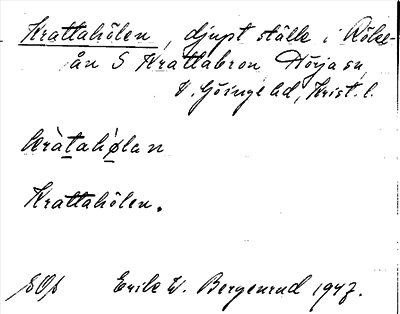 Krattahölen, djupt ställe i Röke-
ån S Krattabron, Hörja sn,
V. Göinge hd, Krist. l.
kràtahølan
Krattahölen.
Erik W. Bergenrud 1947.